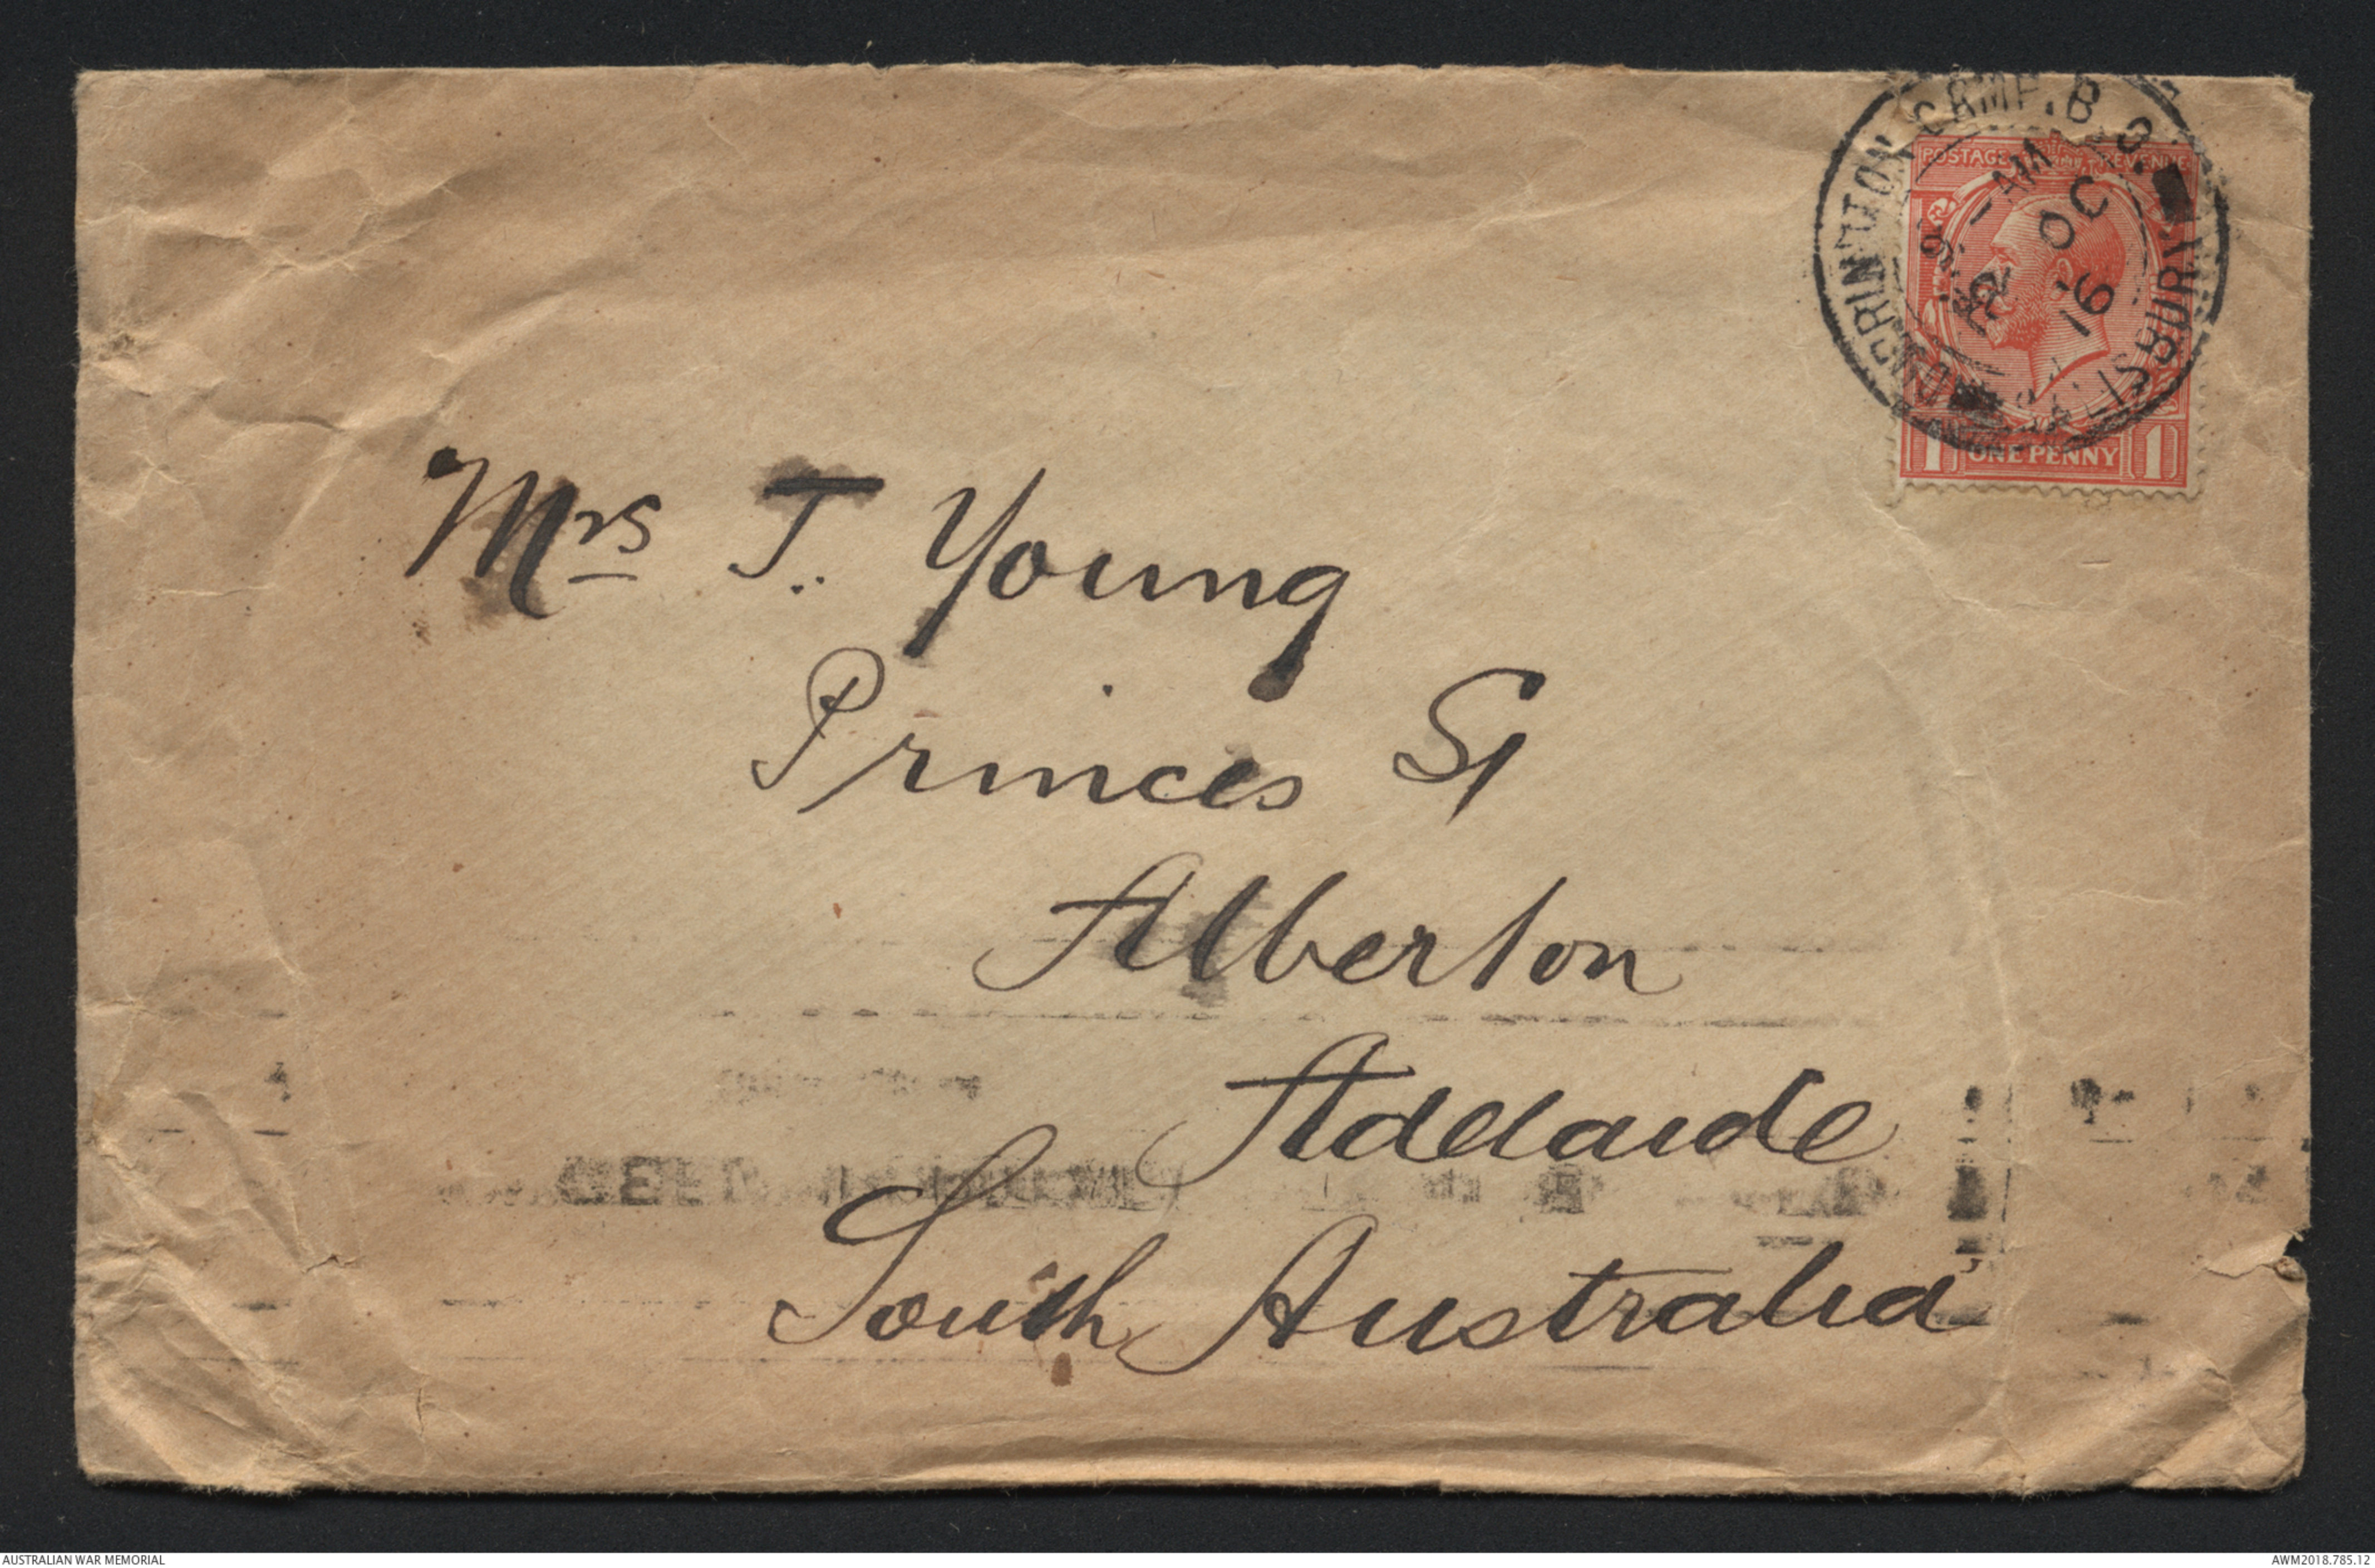 DURRINGTON CAMP. B.O.
SALISBURY
AM
OC
16
POSTAGE REVENUE
1 ONE PENNY 1
Mrs T. Young
Princes St
Alberton
Adelaide
South Australia
AUSTRALIAN WAR MEMORIAL
AWM2018.785.12